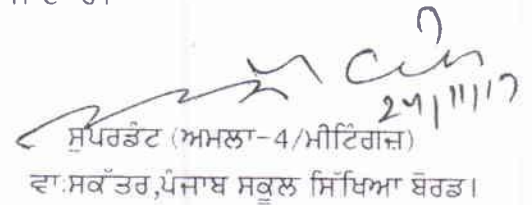 24/11/17
ਸੁਪਰਡੰਟ (ਅਮਲਾ-4/ਮੀਟਿੰਗਜ਼)
ਵਾ:ਸਕੱਤਰ,ਪੰਜਾਬ ਸਕੂਲ ਸਿੱਖਿਆ ਬੋਰਡ।